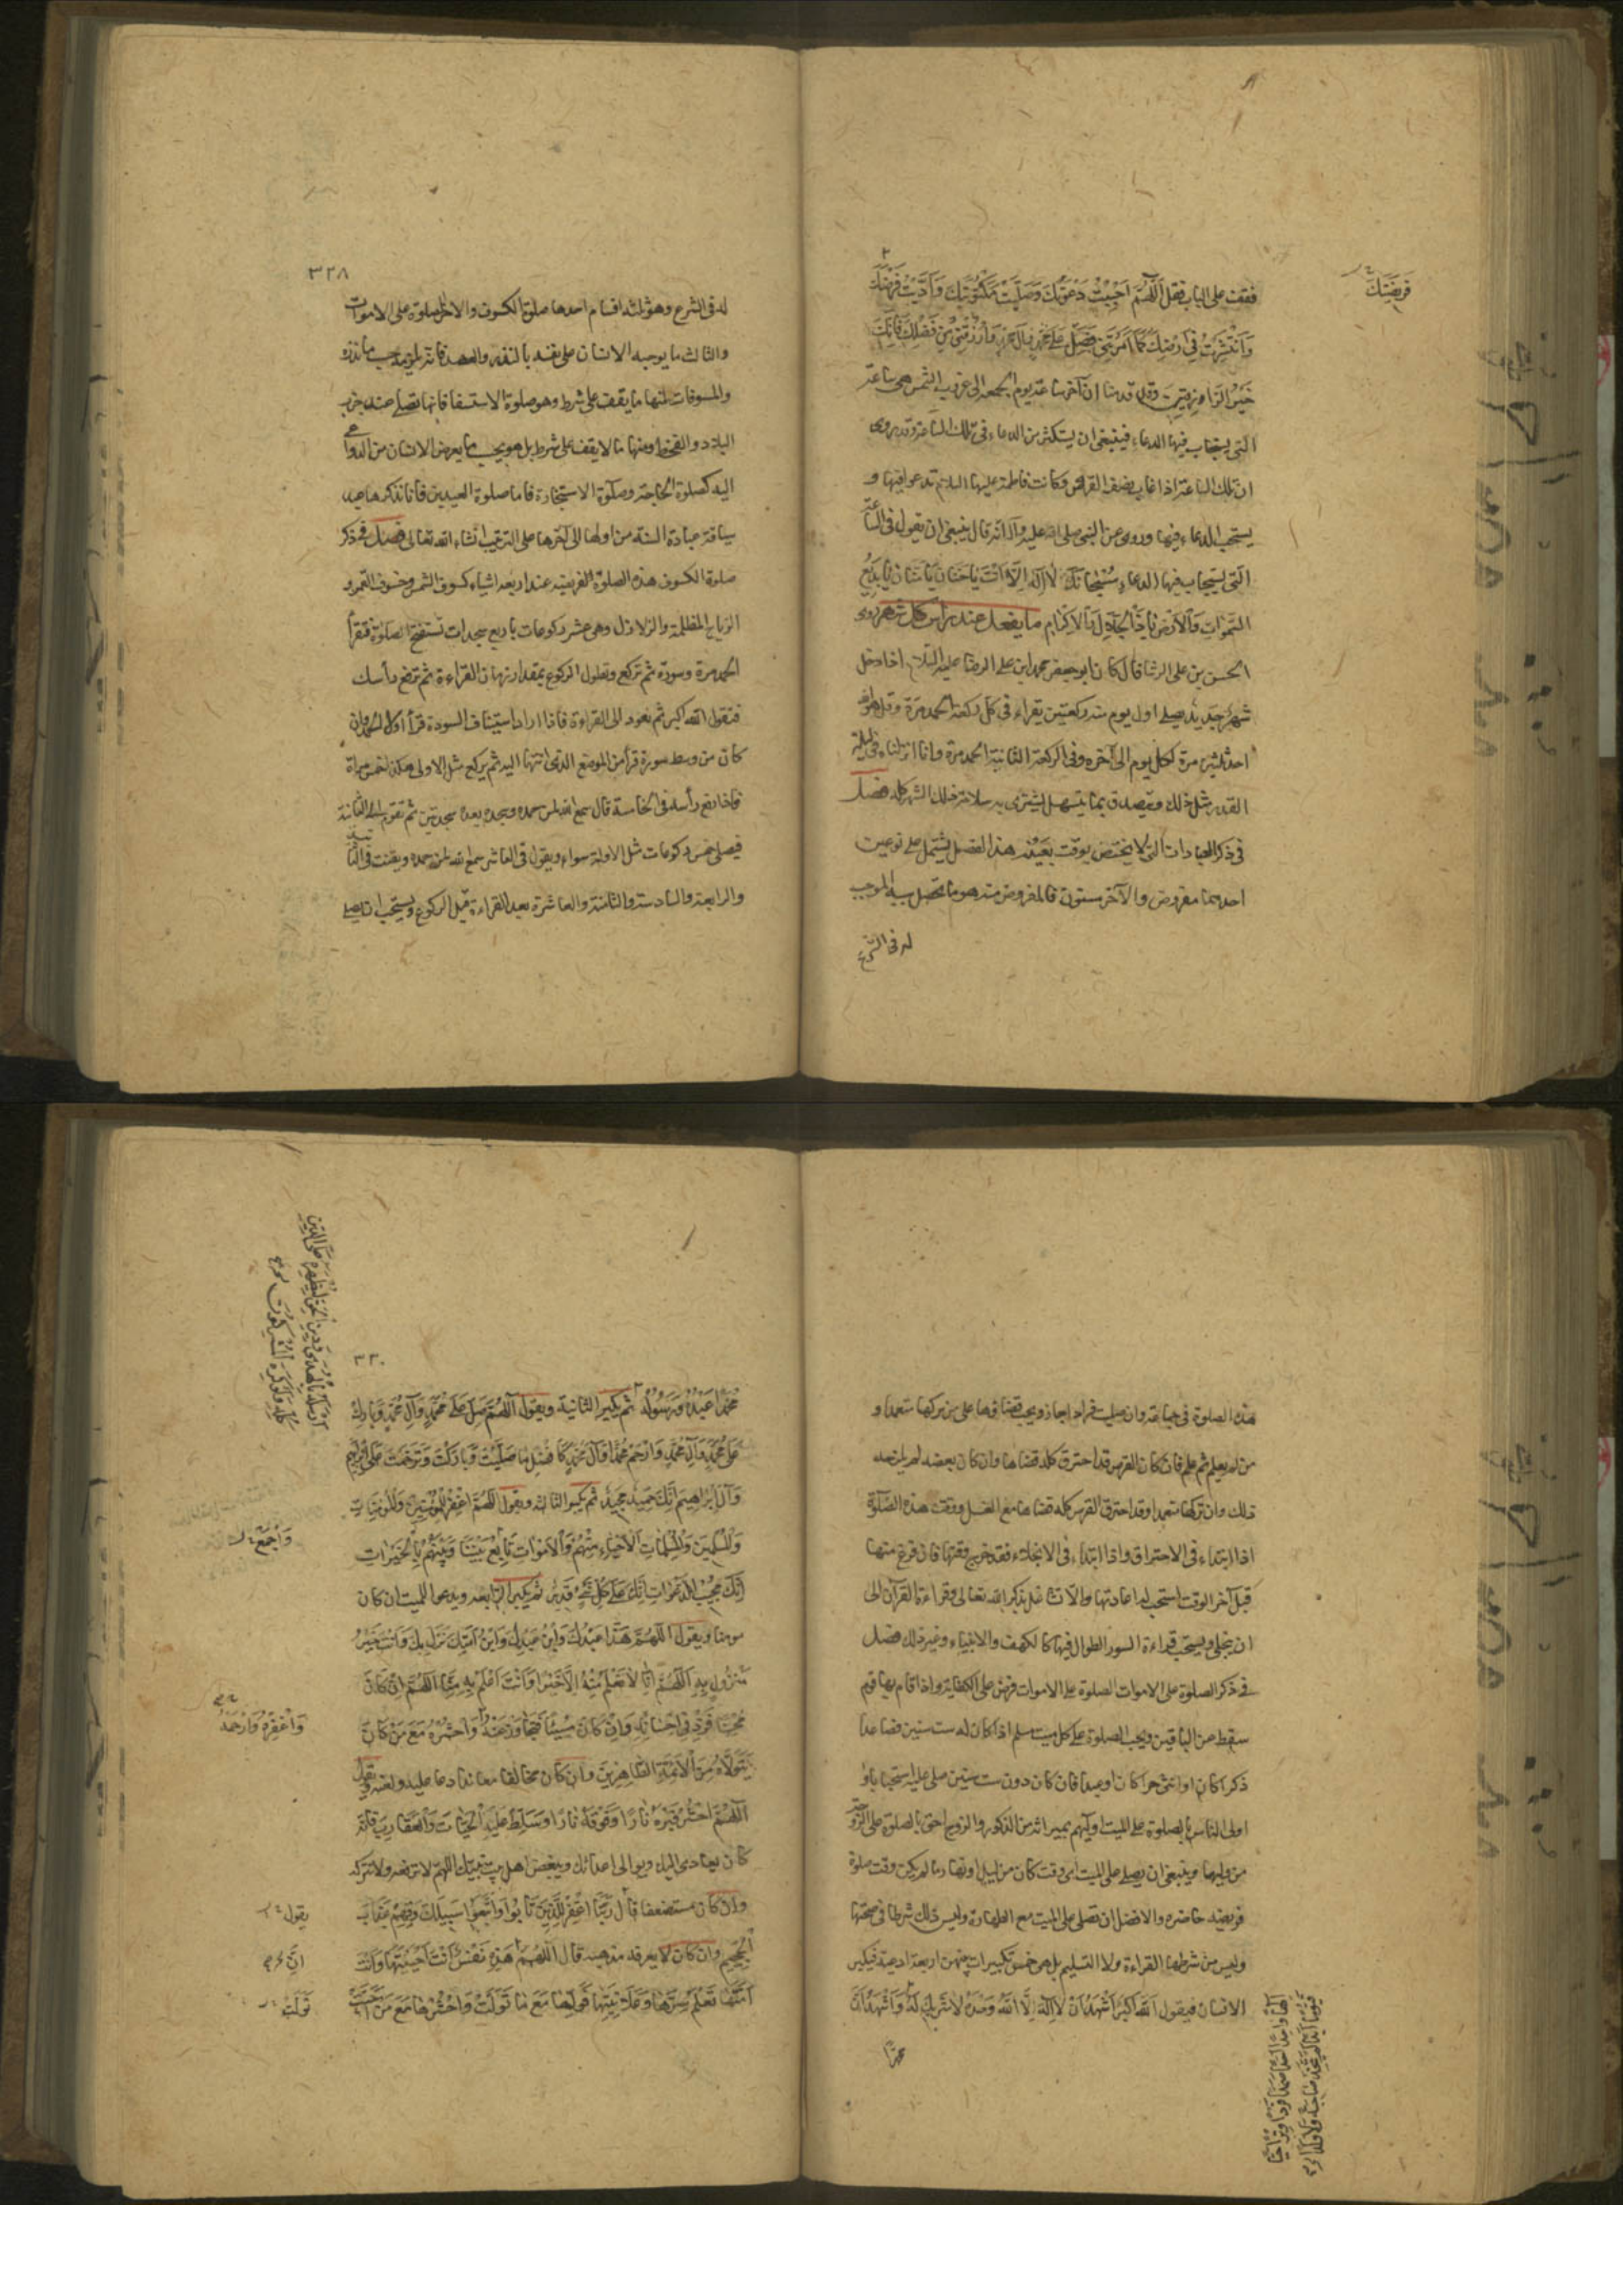 فقف على الباب فقل اَللّهُمَّ اَجَبْتُ دَعْوَتَكَ وَصَلَّيْتُ مَكْتُوبَتَكَ وَاَدَّيْتُ فَرْضَكَ
فَرِيضَتَكَ
وَانْتَشَرْتُ فِي اَرْضِكَ كَمَا اَمَرْتَنِي فَصَلِّ عَلَى مُحَمَّدٍ وَآلِ مُحَمَّدٍ وَارْزُقْنِي مِنْ فَضْلِكَ فَاِنَّكَ
خَيْرُ الرَّازِقِينَ وقد قدمنا ان آخر ساعة يوم الجمعه الى غروب الشمس هى ساعة
التى يستجاب فيها الدعاء فينبغى ان يستكثر من الدعاء فى تلك الساعة وقد روى
ان تلك الساعة اذا غاب نصف القرص وكانت فاطمة عليها السلام تدعو فيها و
يستحب الدعاء فيها وروى عن النبى صلى الله عليه وآله انه قال ينبغى ان يقول فى الساعة
التى يستجاب فيها الدعاء سُبْحَانَكَ لَا اِلَهَ اِلَّا اَنْتَ يَا حَنَّانُ يَا مَنَّانُ يَا بَدِيعَ
السَّمٰوَاتِ وَالْاَرْضِ يَا ذَا الْجَلَالِ وَالْاِكْرَامِ ما يفعل عند راس كل شهر روى
الحسن بن على الوشا قال كان ابو جعفر محمد ابن على الرضا عليه السلام اذا دخل
شهر جديد يصلى اول يوم منه ركعتين يقراء فى كل ركعة الحمد مرة وقل هو الله
احد ثلثين مرة لكل يوم الى آخره وفى الركعة الثانية الحمد مرة وانا انزلناه فى ليلة
القدر مثل ذلك ويتصدق بما يتسهل ليشترى به سلامة ذلك الشهر كله فصل
فى ذكر العبادات التى لا يختص بوقت بعينه هذا الفصل يشتمل على نوعين
احدهما مفروض والآخر مسنون فالمفروض منه هو ما يحصل سببه الموجب
له فى الشرع
٣٢٨
له فى الشرع وهو ثلثه اقسام احدها صلوة الكسوف والاخر الصلوة على الاموات
والثالث ما يوجبه الانسان على نفسه بالنذر والعهد فانه يلزمه حسب ما نذره
والمسنونات منها ما يقف على شرط وهو صلوة الاستسقا فانها تصلى عند جدب
البلاد والقحط ومنها ما لا يقف على شرط بل هو بحسب ما يعرض الانسان من الدواعى
اليه كصلوة الحاجة وصلوة الاستخارة فاما صلوة العيدين فانا نذكرها عند
سياقة عبادة السنة من اولها الى آخرها على الترتيب انشاء الله تعالى فصل فى ذكر
صلوة الكسوف هذه الصلوة الفريضه عند اربعه اشياء كسوف الشمس وخسوف القمر و
الرياح المظلمة والزلازل وهى عشر ركوعات باربع سجدات تستفتح الصلوة فتقرأ
الحمد مرة وسورة ثم تركع وتطول الركوع بمقدار زمان القراءة ثم ترفع رأسك
فتقول الله اكبر ثم تعود الى القراءة فاذا اراد استيناف السورة قرأ اولا الحمد وان
كان من وسط سورة قرأ من الموضع الذى انتهى اليه ثم يركع مثل الاولى هكذا خمس مرات
فاذا رفع رأسه فى الخامسة قال سمع الله لمن حمده ويسجد بعده سجدتين ثم تقوم الى الثانية
فيصلى خمس ركوعات مثل الاولة سواء ويقول فى العاشر سمع الله لمن حمده ويقنت فى الثانية
والرابعة والسادسة والثامنة والعاشرة بعد القراءة قبل الركوع ويستحب ان يصلى
هذه الصلوة فى جماعة وان صليت فرادا جاز ويجب قضاؤها على من تركها متعمدا و
من لم يعلم ثم علم فان كان القرص قد احترق كله قضاها وان كان بعضه لم يلزمه
ذلك وان تركها متعمدا وقد احترق القرص كله قضاها مع الغسل ووقت هذه الصلوة
اذا ابتداء فى الاحتراق واذا ابتداء فى الانجلاء فقد خرج وقتها فان فرغ منها
قبل آخر الوقت استحب له اعادتها والا تشاغل بذكر الله تعالى وقراءة القرآن الى
ان ينجلى ويستحب قراءة السور الطوال فيها كالكهف والانبياء وغير ذلك فصل
فى ذكر الصلوة على الاموات الصلوة على الاموات فرض على الكفاية واذا قام بها قوم
سقط عن الباقين ويجب الصلوة على كل ميت مسلم اذا كان له ست سنين فصاعدا
ذكرا كان او انثى حرا كان او عبدا فان كان دون ست سنين صلى عليه استحبابا و
اولى الناس بالصلوة على الميت اوليهم بميراثه من الذكور والزوج احق بالصلوة على الزوجة
من وليها وينبغى ان يصلى على الميت اى وقت كان من ليل او نهار ما لم يكن وقت صلوة
فريضه حاضره والافضل ان تصلى على الميت مع الطهارة وليس ذلك شرطا فى صحتها
وليس من شرطها القراءة ولا التسليم بل هى خمس تكبيرات بينهن اربعة ادعية فيكبر
الانسان فيقول اَللّٰهُ اَكْبَرُ اَشْهَدُ اَنْ لَا اِلٰهَ اِلَّا اللّٰهُ وَحْدَهُ لَا شَرِيكَ لَهُ وَاَشْهَدُ اَنَّ
محمدا
٣٣٠
مُحَمَّدًا عَبْدُهُ وَرَسُولُهُ ثم يكبر الثانية ويقول اَللّٰهُمَّ صَلِّ عَلَى مُحَمَّدٍ وَآلِ مُحَمَّدٍ وَبَارِكْ
عَلَى مُحَمَّدٍ وَآلِ مُحَمَّدٍ وَارْحَمْ مُحَمَّدًا وَآلَ مُحَمَّدٍ كَاَفْضَلِ مَا صَلَّيْتَ وَبَارَكْتَ وَتَرَحَّمْتَ عَلَى اِبْرٰهِيمَ
وَآلِ اِبْرَاهِيمَ اِنَّكَ حَمِيدٌ مَجِيدٌ ثم يكبر الثالثه ويقول اَللّٰهُمَّ اغْفِرْ لِلْمُؤْمِنِينَ وَالْمُؤْمِنَاتِ
وَالْمُسْلِمِينَ وَالْمُسْلِمَاتِ اَلْاَحْيَاءِ مِنْهُمْ وَالْاَمْوَاتِ تَابِعْ بَيْنَنَا وَبَيْنَهُمْ بِالْخَيْرَاتِ
وَاجْمَعْ
اِنَّكَ مُجِيبُ الدَّعَوَاتِ اِنَّكَ عَلَى كُلِّ شَيْءٍ قَدِيرٌ ثم يكبر الرابعه ويدعو للميت ان كان
مومنا ويقول اَللّٰهُمَّ هَذَا عَبْدُكَ وَابْنُ عَبْدِكَ وَابْنُ اَمَتِكَ نَزَلَ بِكَ وَاَنْتَ خَيْرُ
مَنْزُولٍ بِهِ اَللّٰهُمَّ اِنَّا لَا نَعْلَمُ مِنْهُ اِلَّا خَيْرًا وَاَنْتَ اَعْلَمُ بِهِ مِنَّا اَللّٰهُمَّ اِنْ كَانَ
مُحْسِنًا فَزِدْ فِي اِحْسَانِهِ وَاِنْ كَانَ مُسِيئًا فَتَجَاوَزْ عَنْهُ وَاحْشُرْهُ مَعَ مَنْ كَانَ
وَاغْفِرْهُ وَارْحَمْهُ
يَتَوَلَّاهُ مِنَ الْاَئِمَّةِ الطَّاهِرِينَ وان كان مخالفا معاندا دعا عليه ولعنه ويقول
اَللّٰهُمَّ احْشُ قَبْرَهُ نَارًا وَفَوْقَهُ نَارًا وَسَلِّطْ عَلَيْهِ الْحَيَّاتِ وَالْعَقَارِبَ فَاِنَّهُ
كان يعادى اليك ويوالى اعدائك ويبغض اهل بيت نبيك اللهم لا ترفعه ولا تتركه
وان كان مستضعفا قال رَبَّنَا اغْفِرْ لِلَّذِينَ تَابُوا وَاتَّبَعُوا سَبِيلَكَ وَقِهِمْ عَذَابَ
يقول
الْجَحِيمِ وان كان لا يعرف مذهبه قال اَللّٰهُمَّ هَذِهِ نَفْسٌ اَنْتَ اَحْيَيْتَهَا وَاَنْتَ
اِنَّ
اَمَتَّهَا تَعْلَمُ سِرَّهَا وَعَلَانِيَتَهَا فَوَلِّهَا مَعَ مَا تَوَلَّتْ وَاحْشُرْهَا مَعَ مَنْ اَحَبَّتْ
تَوَلَّتْ
اَرْسَلَهُ بِالْهُدَى وَدِينِ الْحَقِّ لِيُظْهِرَهُ عَلَى الدِّينِ
كُلِّهِ وَلَوْ كَرِهَ الْمُشْرِكُونَ